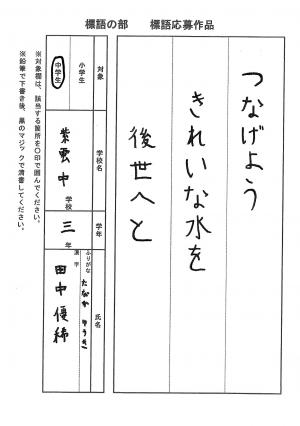 標語の部　標語応募作品
つなげよう
きれいな水を
後世へと
対象
小学生
中学生
学校名
紫雲中学校
学年
三年
氏名
ふりがな
たなか ゆうき
漢字
田中優稀
※対象欄は、該当する箇所を〇印で囲んでください。
※鉛筆で下書き後、黒のマジックで清書してください。